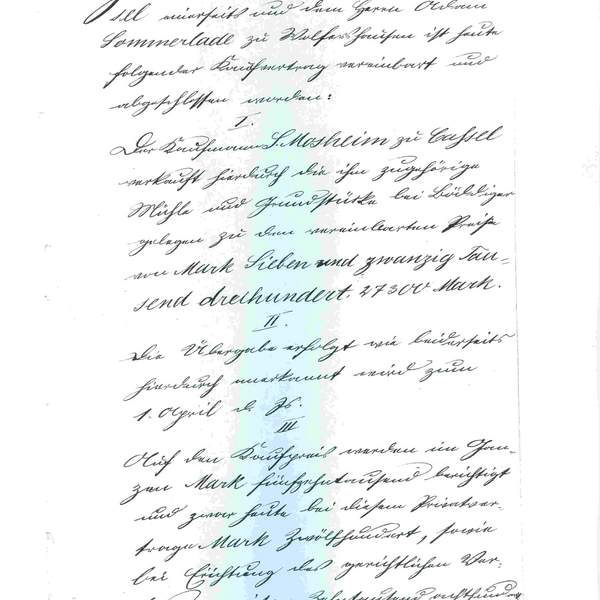 sel einerseits und dem Herrn Adam
Sommerlade zu Wolfershausen ist heute
folgender Kaufvertrag vereinbart und
abgeschlossen worden:
I.
Der Kaufmann S. Mosheim zu Cassel
verkauft hierdurch die ihm zugehörige
Mühle und Grundstücke bei Böddiger
gelegen zu dem vereinbarten Preise
von Mark Sieben und zwanzig Tau-
send dreihundert. 27300 Mark.
II.
Die Übergabe erfolgt wie beiderseits
hierdurch anerkannt wird zum
1. April d. Js.
III
Auf den Kaufpreis werden im Gan-
zen Mark fünfzehntausend berichtigt
und zwar heute bei diesem Privatver-
trage Mark Zwölfhundert, sowie
bei Erichtung des gerichtlichen Ver-
Zehntausend achthundert